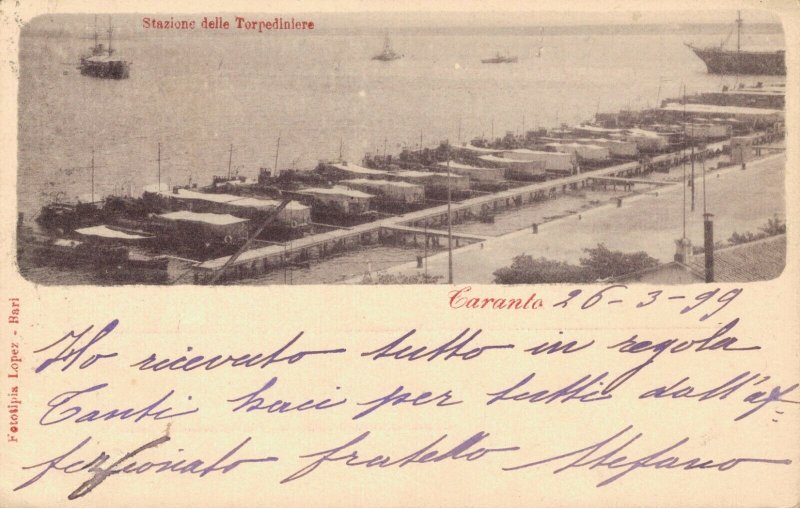 Stazione delle Torpediniere
Taranto 26-3-99
Ho ricevuto tutto in regola
Tanti baci per tutti dall'af=
fezionato fratello Stefano
Fototipia Lopez - Bari